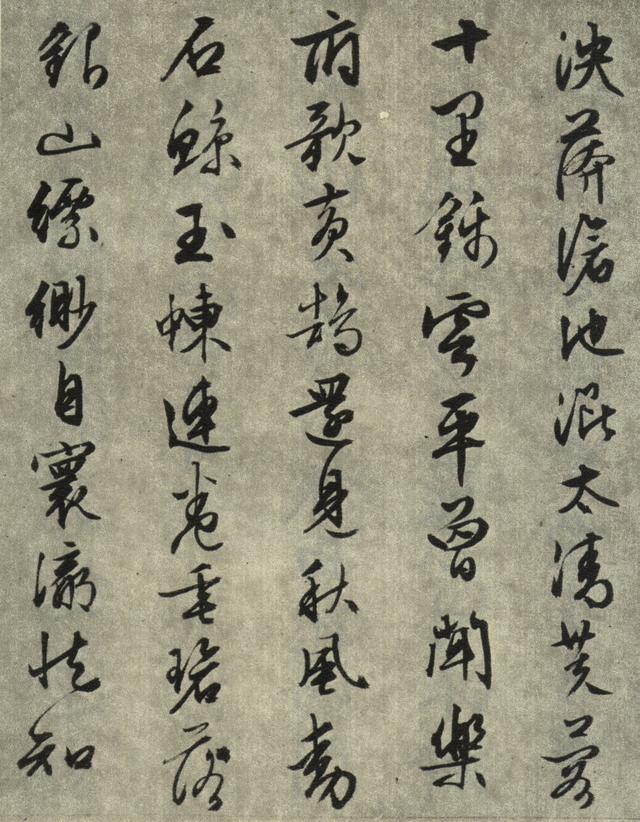 泱莽滄池混太清芙蓉
十里錦雲平曾聞樂
府歌黃鵠還見秋風動
石鯨玉蝀連卷垂碧落
銀山縹緲自寰瀛從知